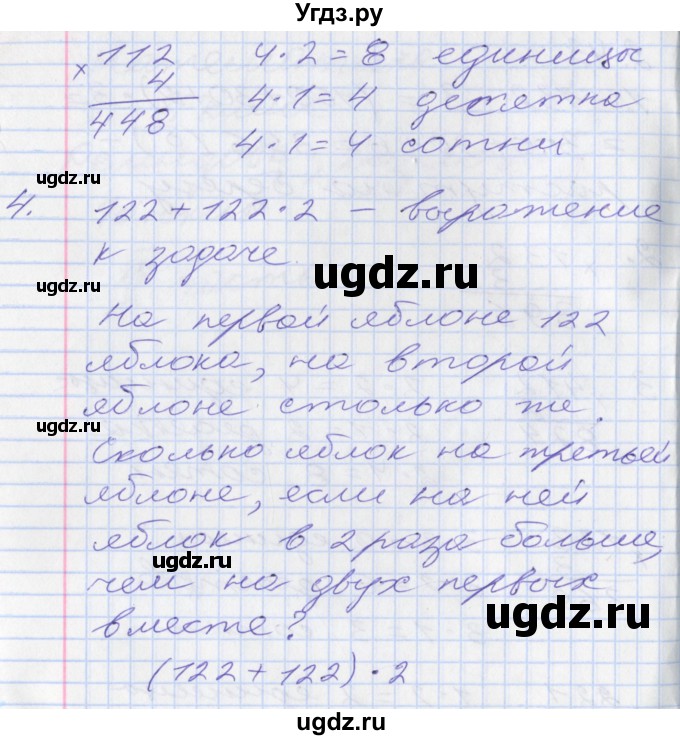 Угдз.ру
112 4·2=8 единицы
× 4 4·1=4 десятка
448 4·1=4 сотни
ugdz.ru
4. 122+122·2 – выражение
к задаче.
ugdz.ru
ugdz.ru
На первой яблоне 122
яблока, на второй
ugdz.ru
яблоне столько же.
Сколько яблок на третьей
яблоне, если на ней
яблок в 2 раза больше,
ugdz.ru
чем на двух первых
ugdz.ru
вместе?
(122+122)·2
ugdz.ru